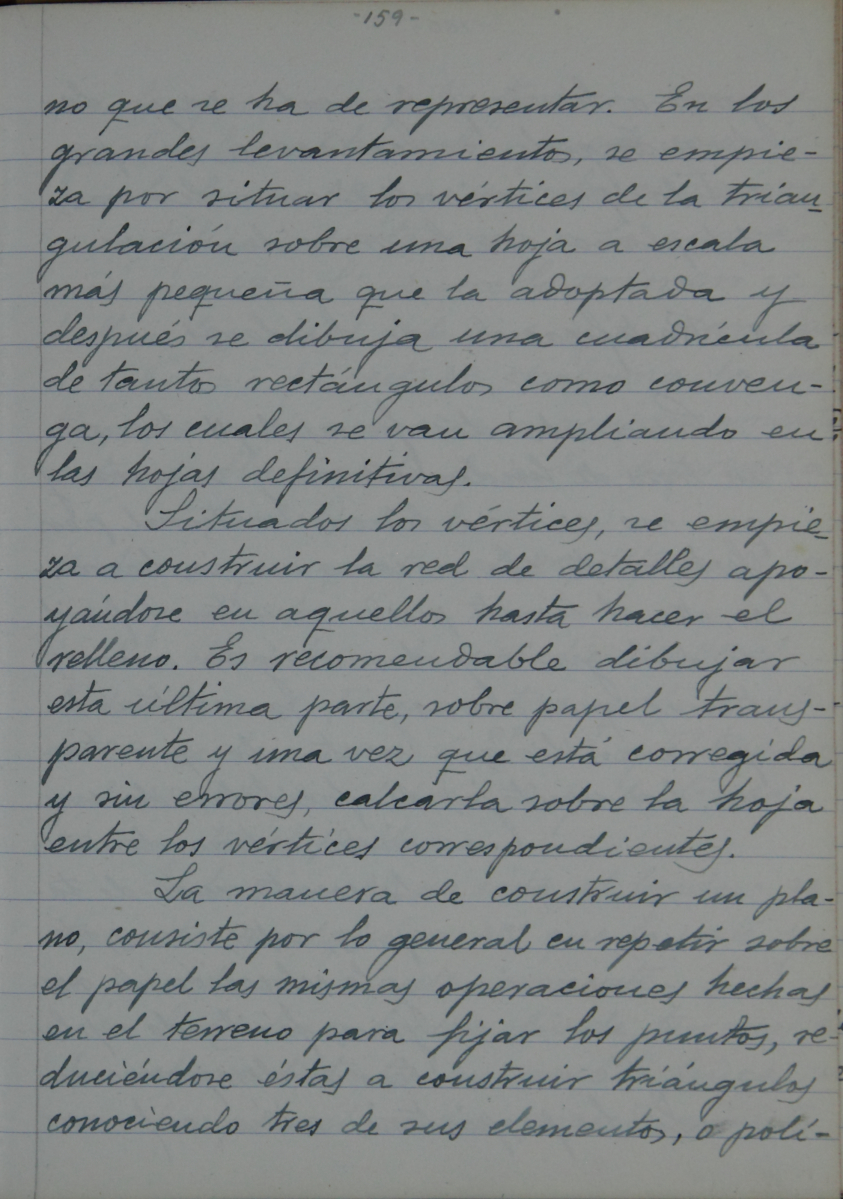 -159-
no que se ha de representar. En los
grandes levantamientos, se empie-
za por situar los vértices de la trian-
gulación sobre una hoja a escala
más pequeña que la adoptada y
después se dibuja una cuadrícula
de tantos rectángulos como conven-
ga, los cuales se van ampliando en
las hojas definitivas.
Situados los vértices, se empie-
za a construir la red de detalles apo-
yándose en aquellos hasta hacer el
relleno. Es recomendable dibujar
esta última parte, sobre papel trans-
parente y una vez que está corregida
y sin errores, calcarla sobre la hoja
entre los vértices correspondientes.
La manera de construir un pla-
no, consiste por lo general en repetir sobre
el papel las mismas operaciones hechas
en el terreno para fijar los puntos, re-
duciéndose éstas a construir triángulos
conociendo tres de sus elementos, o polí-